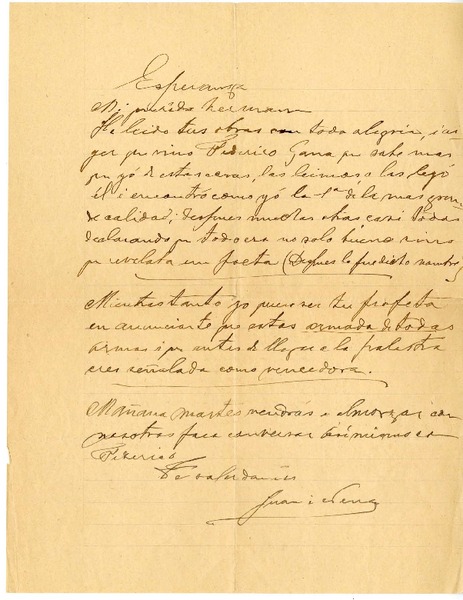 Esperanza
Mi querida hermana
He leido tus obras con toda alegria, i a
yer que vino Federico Gana que sabe mas
que yó de estas cosas, las leimos o las leyó
él i encontró como yó la 1ª de la mas gran
de calidad; despues muchas otras casi todas
declarando que todo era no solo bueno sino
que revelaba un poeta (Despues lo que dicto nuestro)
Mientras tanto yo quiero ser tu profeta
en anunciarte que estas armada de todas
armas i que antes de llegar a la palestra
eres señalada como vencedora.
Mañana martes vendrás a almorzar con
nosotros para conversar con
Federico
Te saludan
Juan i